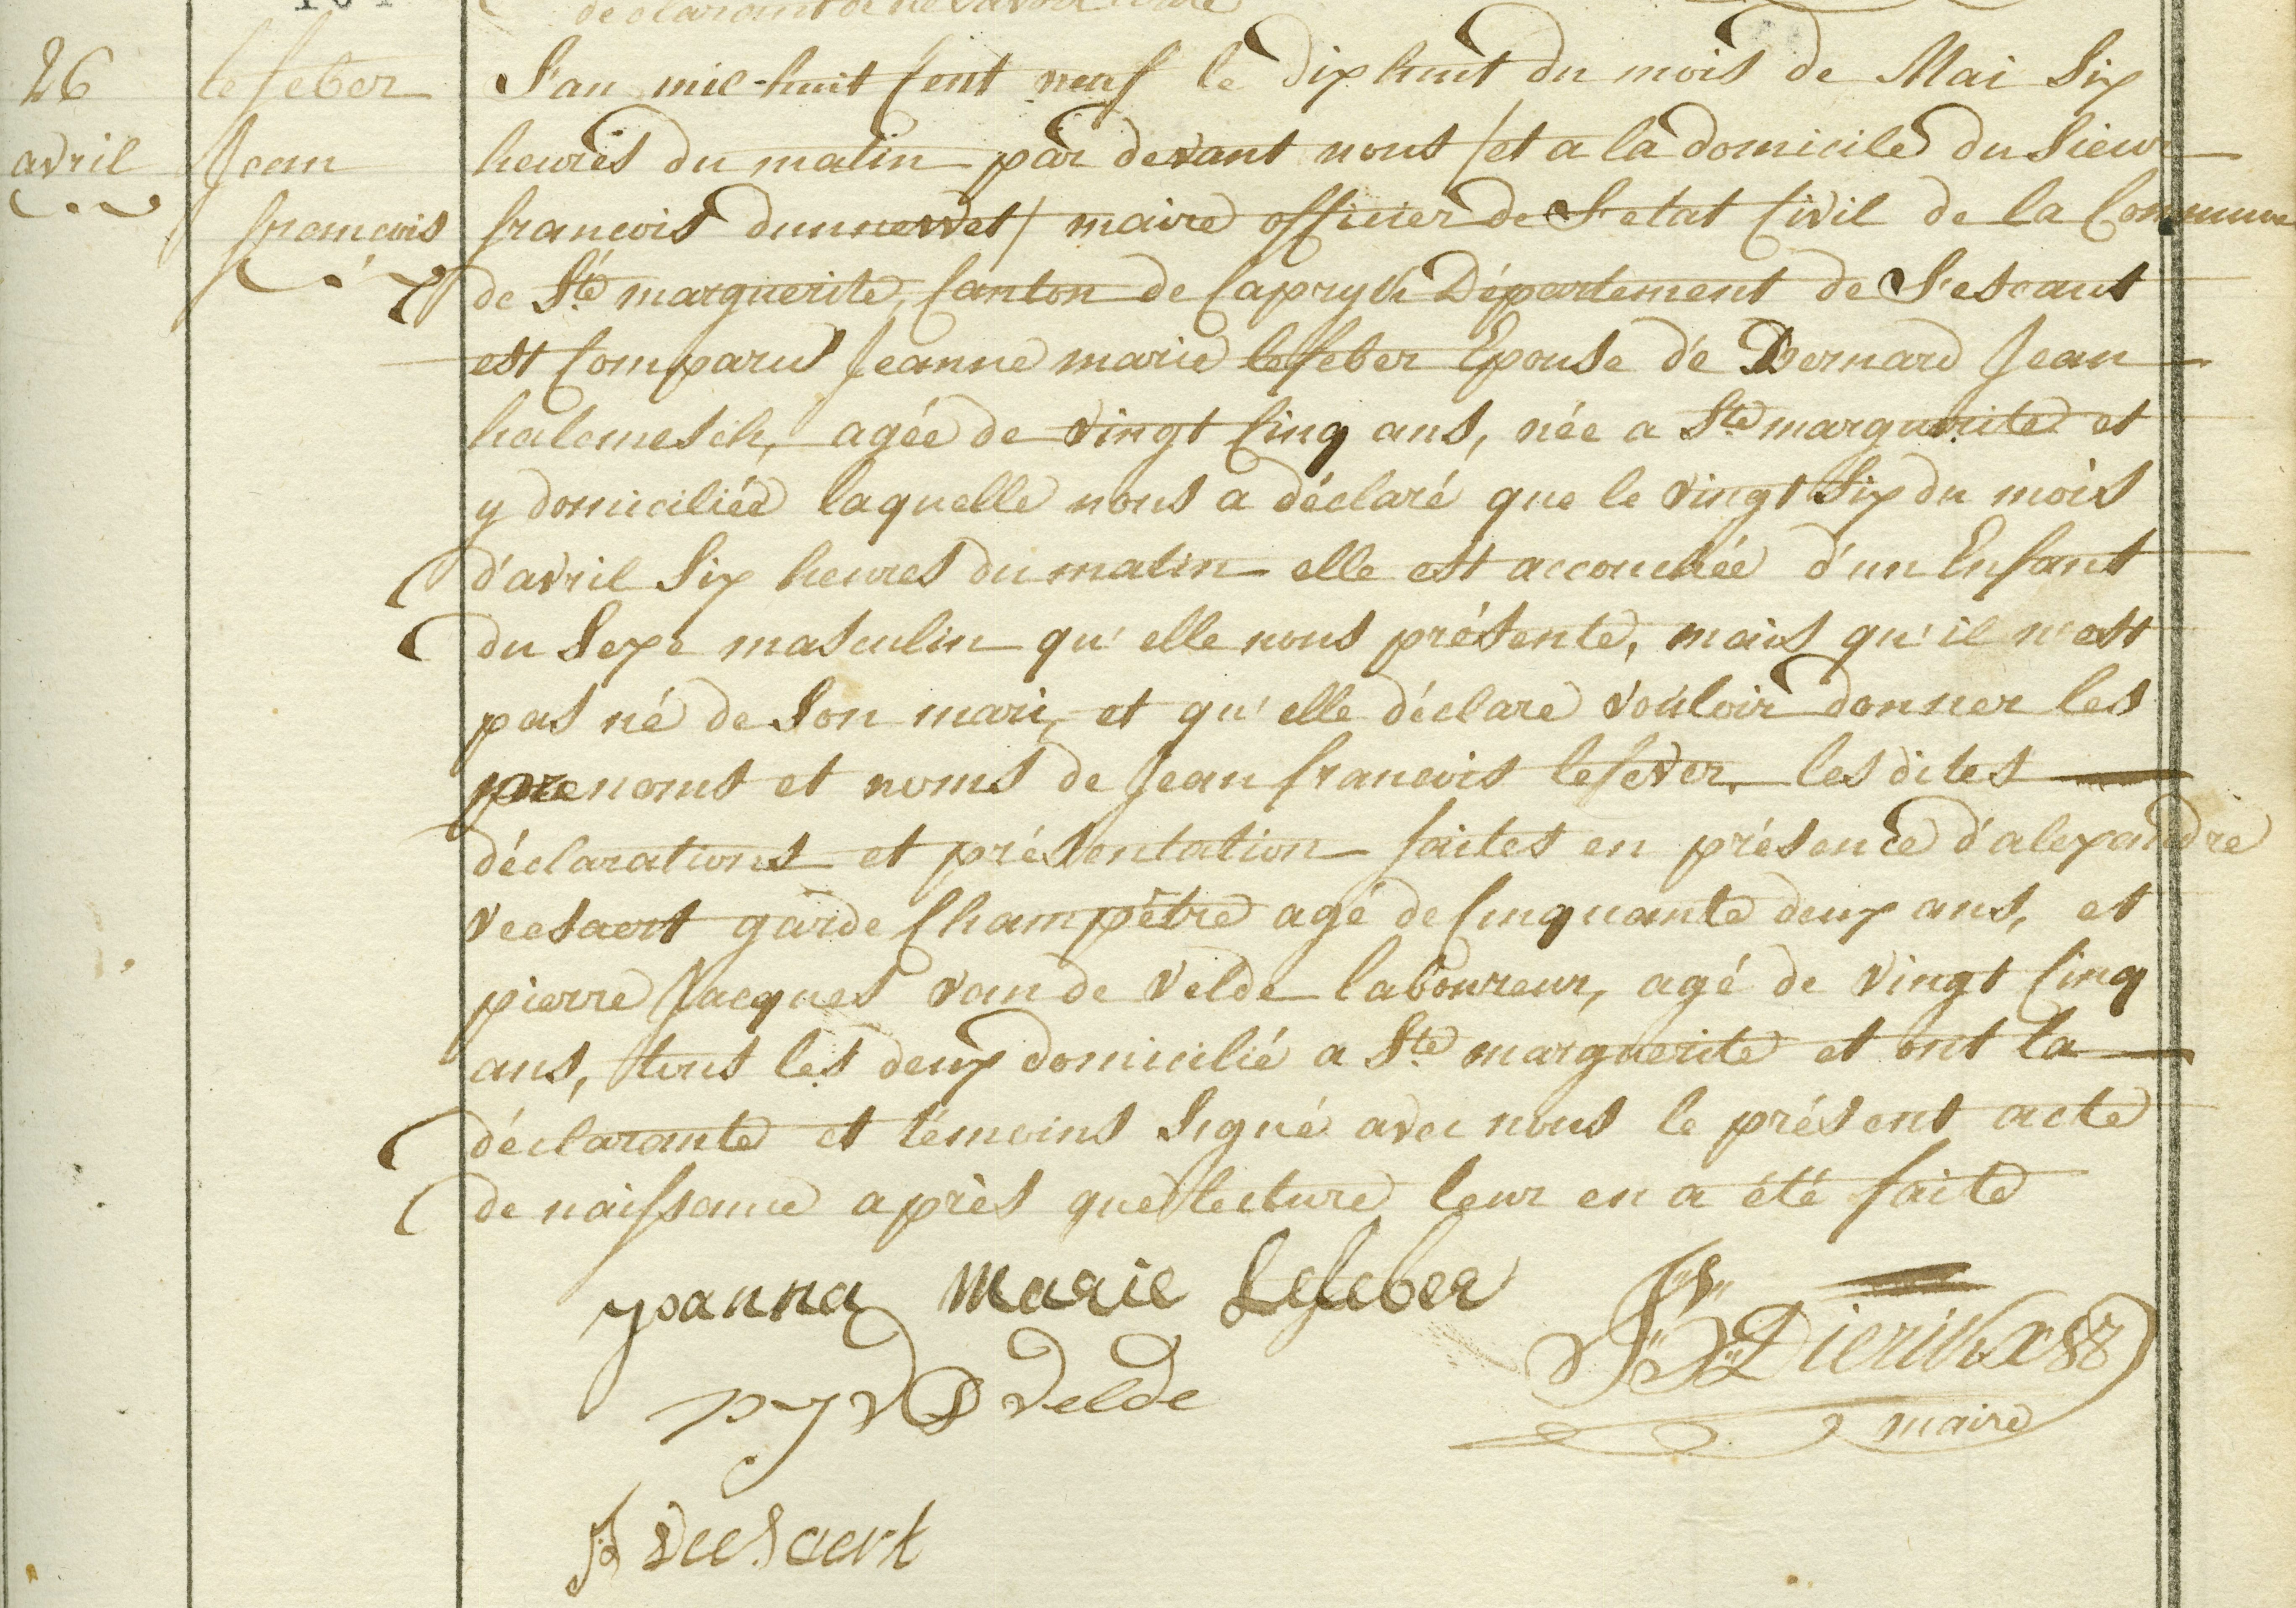 26
avril
lefeber
Jean
francois
L'an mil-huit Cent neuf le dix huit du mois de Mai Six
heures du matin par devant nous (et a la domicile du Sieur
francois dunnewet) maire officier de L'etat Civil de la Commune
de Ste marguerite, Canton de Capryck Département de L'escaut
est Comparus Jeanne marie lefeber Epouse de Bernard Jean
halemesch, agée de vingt Cinq ans, née a Ste marguerite et
y domiciliée laquelle nous a déclaré que le vingt Six du mois
d'avril Six heures du matin elle est accouchée d'un Enfant
du Sexe masculin qu'elle nous présente, mais qu'il n'est
pas né de Son mari, et qu'elle déclare vouloir donner les
prenoms et noms de Jean francois lefever, les dites
déclarations et présentation faites en présence d'alexandre
veesaert garde Champêtre agé de Cinquante deux ans, et
pierre Jacques van de velde laboureur, agé de vingt Cinq
ans, tous les deux domicilié a Ste marguerite et ont la
déclarante et témoins Signé avec nous le présent acte
de naissance après que lecture leur en a été faite
yoanna Marie Lefeber
Dierikx
maire
p J v D velde
A veesaert